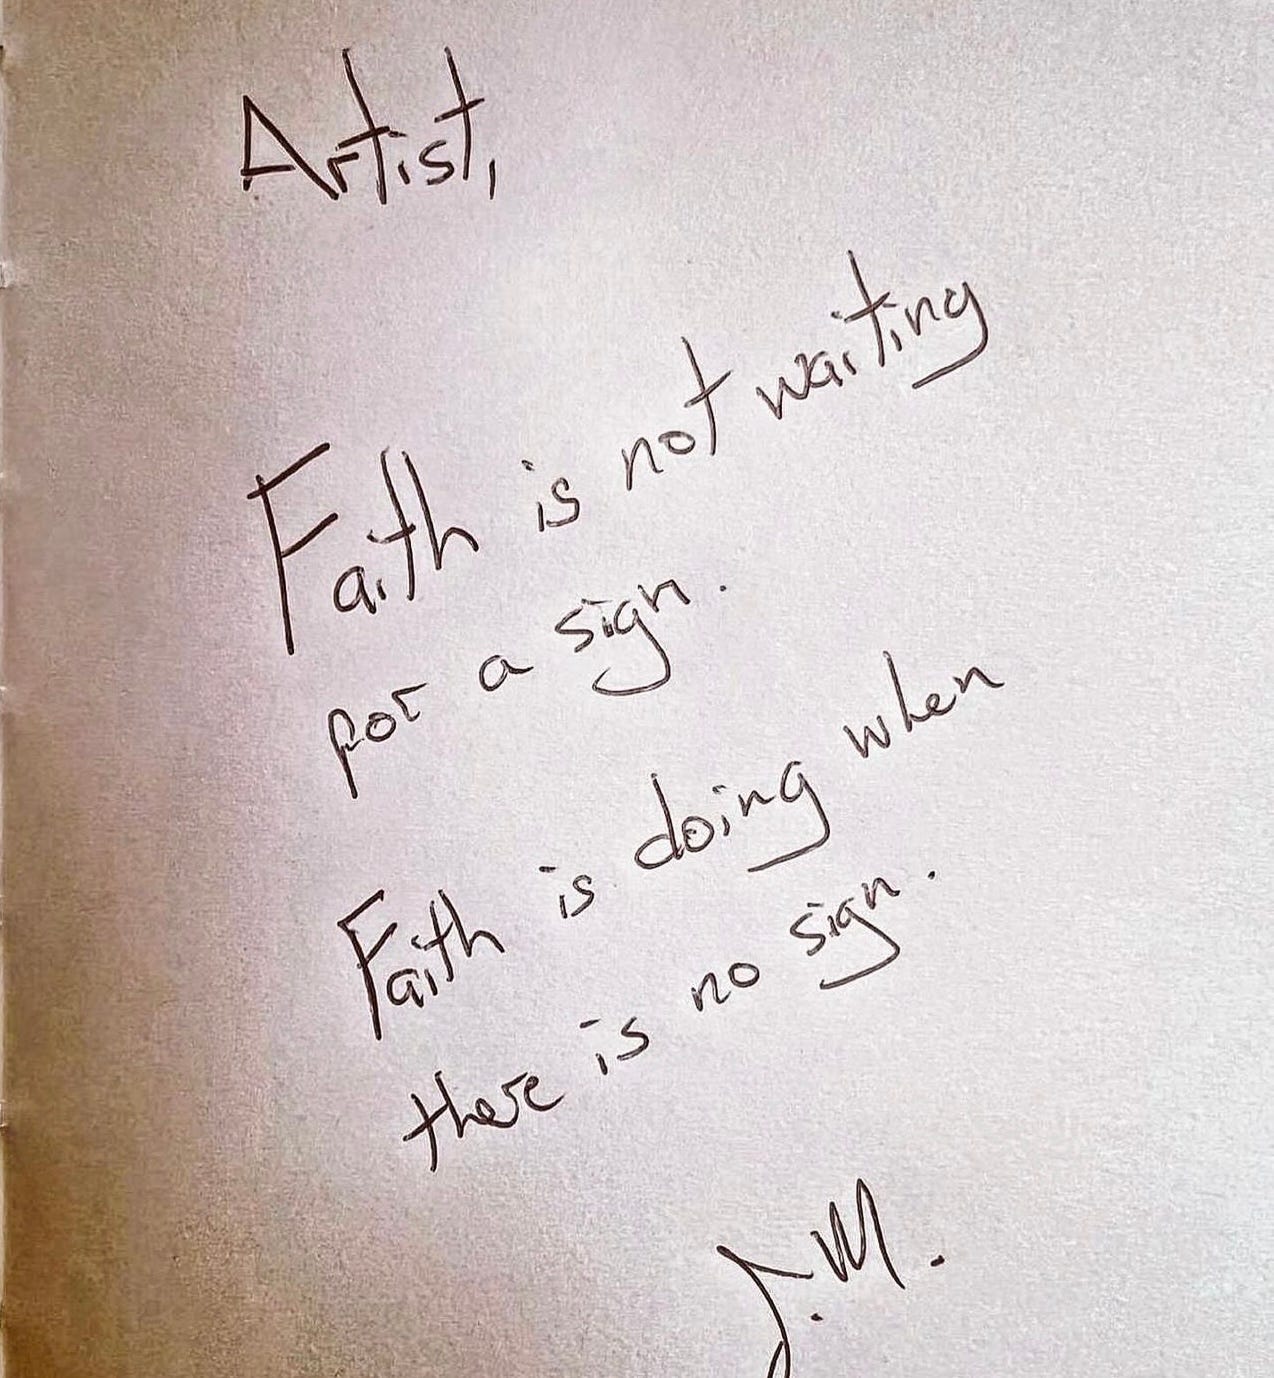 Artist,
Faith is not waiting
for a sign.
Faith is doing when
there is no sign.
J.M.